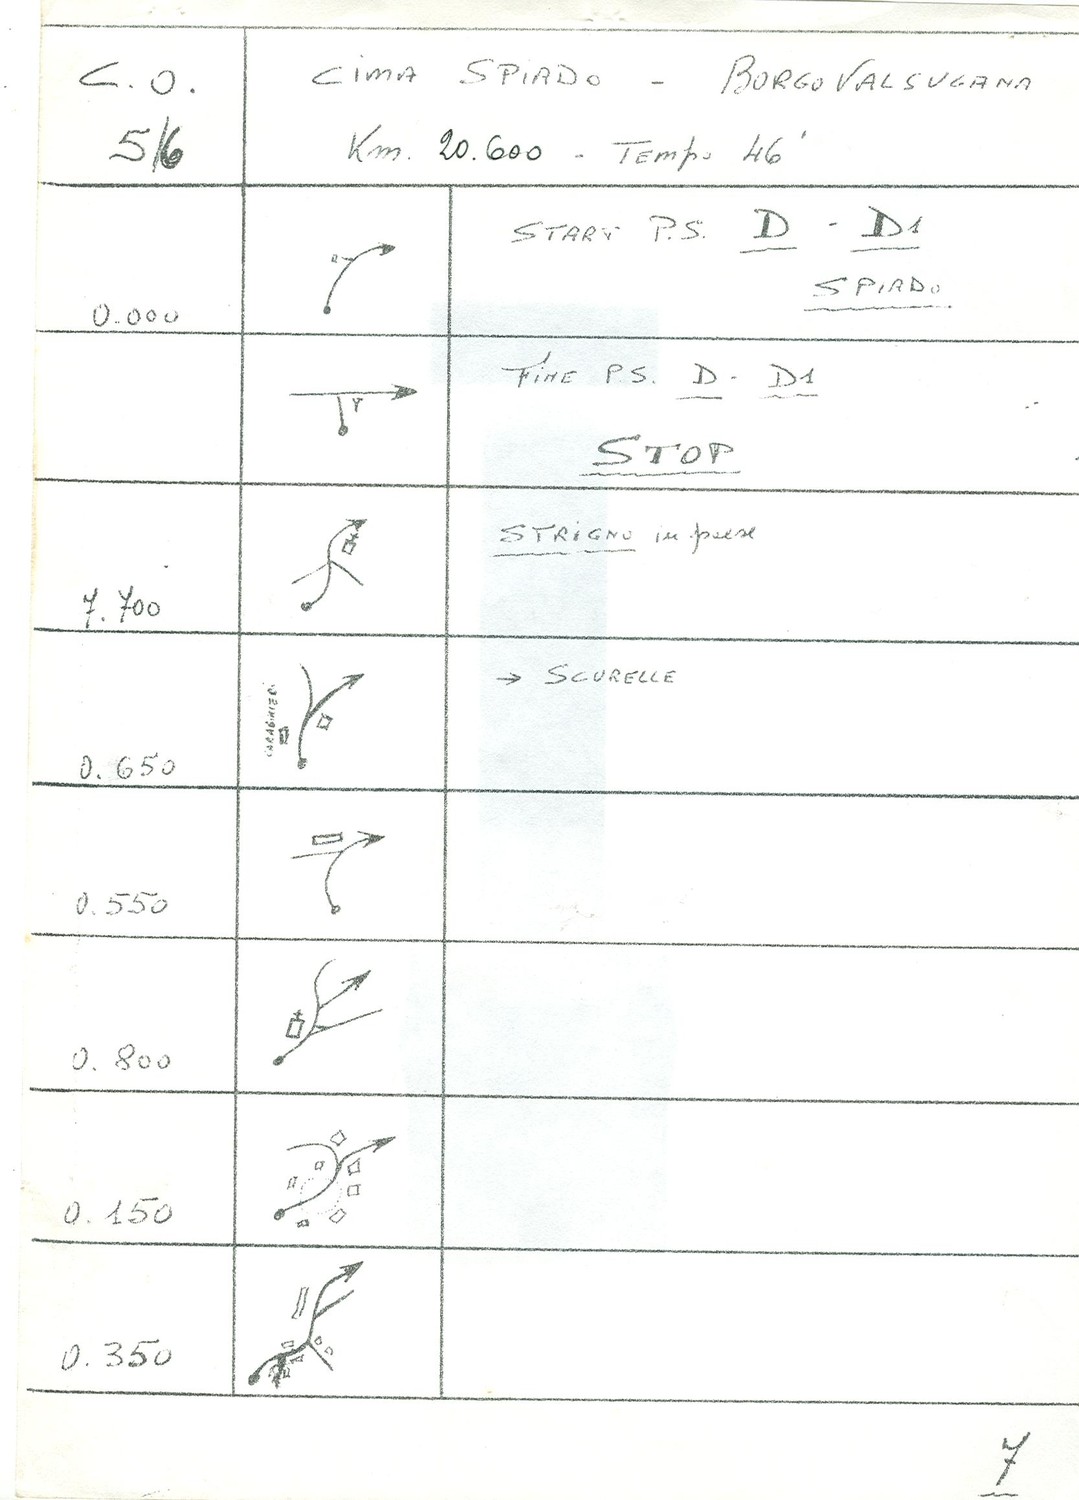 C.O. CIMA SPIADO - BORGO VALSUGANA
5/6 Km. 20.600 - Tempo 46'
START P.S. D - D1
SPIADO
0.000
FINE P.S. D - D1
STOP
STRIGNO in paese
7.700
→ SCURELLE
CARABINIERI
0.650
0.550
0.800
0.150
0.350
7